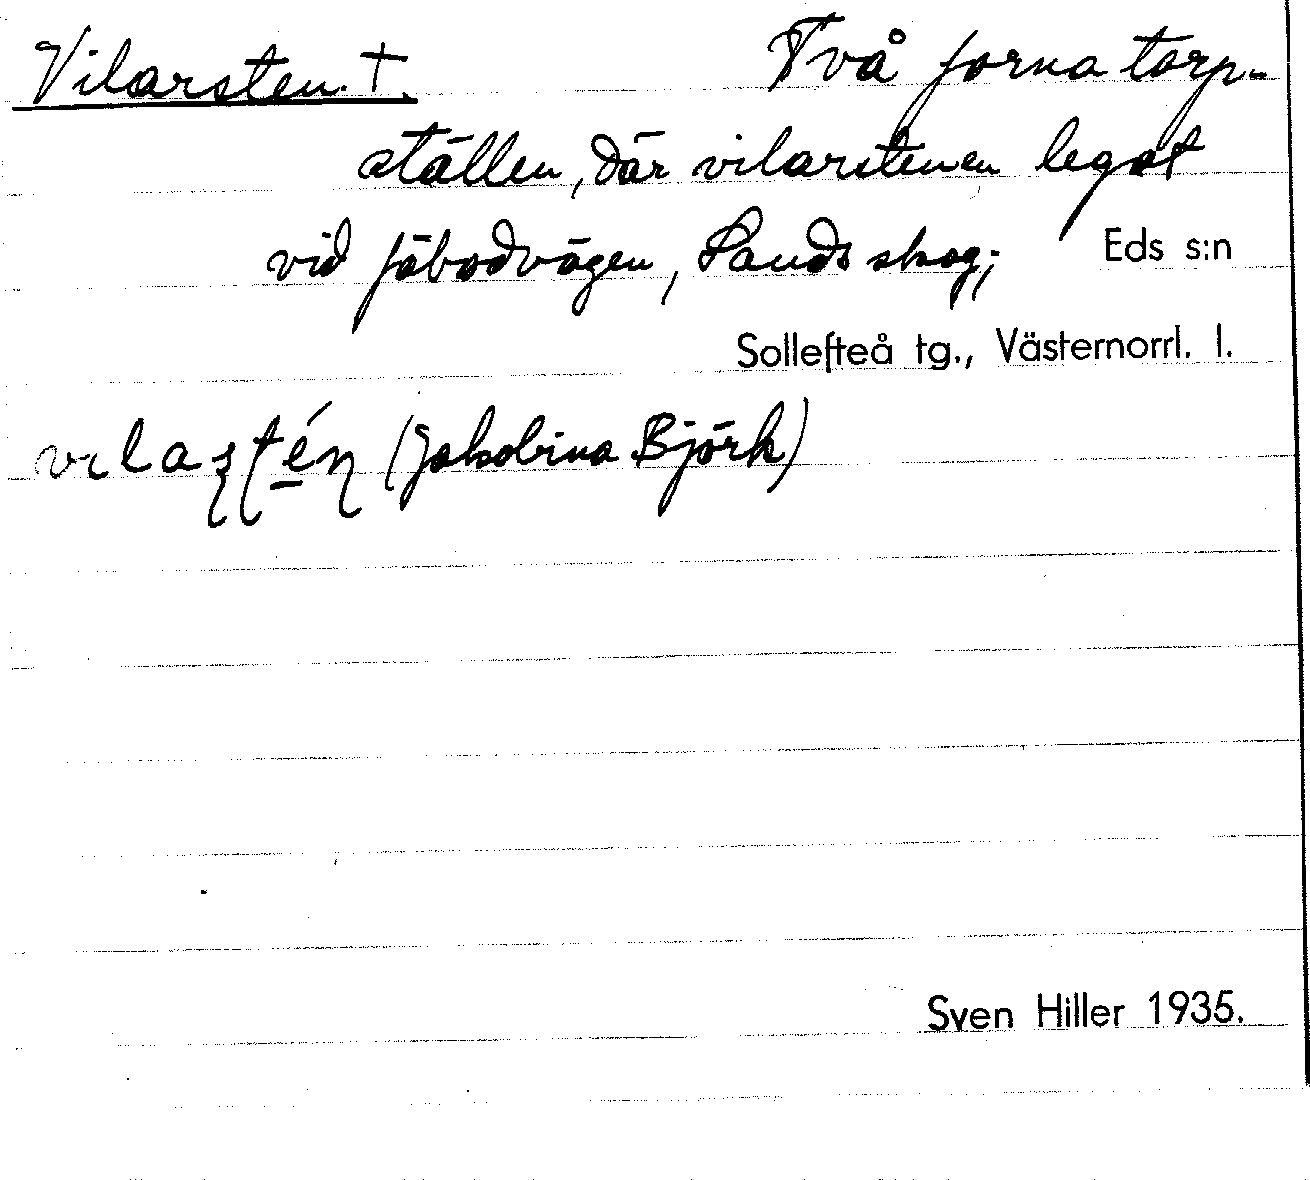 Vilarsten. †. Två forna torp-
ställen, där vilarstenen legat
vid fäbodvägen, Sands skog; Eds s:n
Sollefteå tg., Västernorrl. l.
(Jakobina Björk)
Sven Hiller 1935.